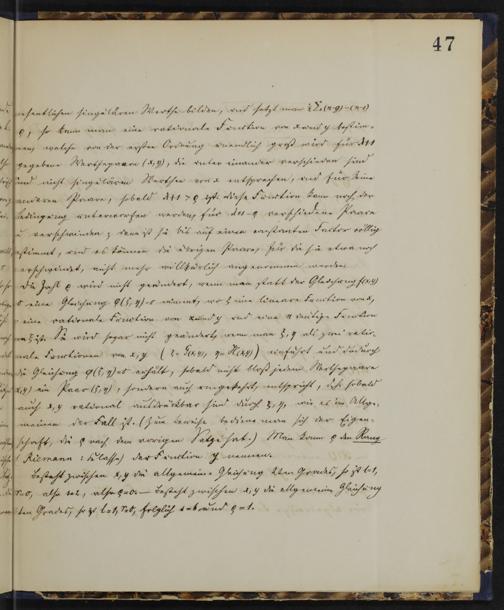 47
wesentlichen singulären Werthe bilden, und setzt man
ϱ, so kann man eine rationale Function von x und y bestim-
men, welche von der ersten Ordnung unendlich groß wird für
gegebene Werthepaare (x, y), die unter einander verschieden sind
und nicht singulären Werthen von x entsprechen, und für keine
anderen Paare, sobald diese Function kann noch der
Bedingung unterworfen werden, für verschiedene Paare
zu verschwinden; dann ist sie bis auf einen constanten Factor völlig
bestimmt, und es können die übrigen Paare, für die sie etwa noch
verschwindet, nicht mehr willkürlich angenommen werden.
Die Zahl ϱ wird nicht geändert, wenn man statt der Gleichung f(x, y)
= 0 eine Gleichung φ(ξ, y) = 0 nimmt, wo ξ eine lineare Function von x,
eine rationale Function von x und y und eine n deutige Function
von ξ ist. Sie wird sogar nicht geändert, wenn man ξ, η als zwei ratio-
nale Functionen von x, y einführt und dadurch
die Gleichung φ(ξ, η) = 0 erhält, sobald nicht bloß jedem Werthepaare
(x, y) ein Paar (ξ, η), sondern auch umgekehrt, entspricht, d. h. sobald
auch x, y rational ausdrückbar sind durch ξ, η, wie es im Allge-
meinen der Fall ist. (Zum Beweise bediene man sich der Eigen-
schaft, die ϱ nach dem vorigen Satze hat.) Man kann ϱ den Rang
(Riemann: Klasse) der Function y nennen.
Besteht zwischen x, y die allgemeine Gleichung 2ten Grades, so ist
also also ϱ = 0. — Besteht zwischen x, y die allgemeine Gleichung
ten Grades, so ist folglich und ϱ = 1.